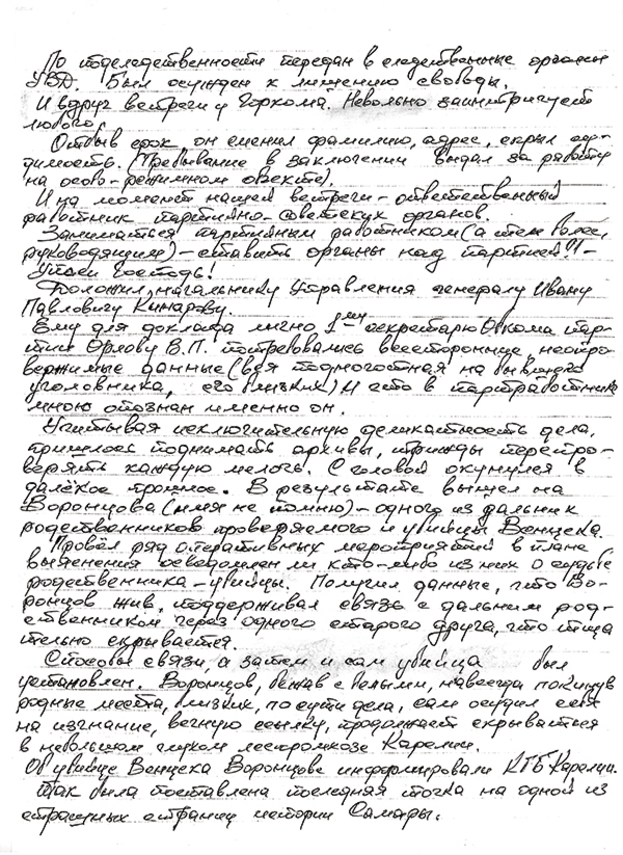 По подследственности передан в следственные органы
УВД. Был осужден к лишению свободы.
И вдруг встреча у Горкома. Невольно заинтригует
любого.
Отбыв срок, он сменил фамилию, адрес, скрыл су-
димость. (Пребывание в заключении выдал за работу
на особо-режимном объекте).
И на момент нашей встречи - ответственный
работник партийно-советских органов.
Заниматься партийным работником (а тем более,
руководящим) - ставить органы над партией!! -
упаси Господь!
Доложил начальнику Управления генералу Ивану
Павловичу Кинарову.
Ему для доклада лично 1му секретарю Обкома пар-
тии Орлову В.П. потребовались всесторонние, неопро-
вержимые данные (вся подноготная на бывшего
уголовника, его близких) и что в партработнике
мною опознан именно он.
Учитывая исключительную деликатность дела,
пришлось поднимать архивы, трижды перепро-
верять каждую мелочь. С головой окунулся в
далёкое прошлое. В результате вышел на
Воронцова (имя не помню) - одного из дальних
родственников проверяемого и убийцы Венцека.
Провёл ряд оперативных мероприятий в плане
выяснения осведомлен ли кто-либо из них о судьбе
родственника - убийцы. Получил данные, что Во-
ронцов жив, поддерживал связь с дальним род-
ственником через одного старого друга, что тща
тельно скрывается.
Способы связи, а затем и сам убийца был
установлен. Воронцов, бежав с белыми, навсегда покинув
родные места, близких, по сути дела, сам осудил себя
на изгнание, вечную ссылку, продолжает скрываться
в небольшом глухом леспромхозе Карелии.
Об убийце Венцека Воронцове информировали КГБ Карелии.
Так была поставлена последняя точка на одной из
страшных страниц истории Самары.